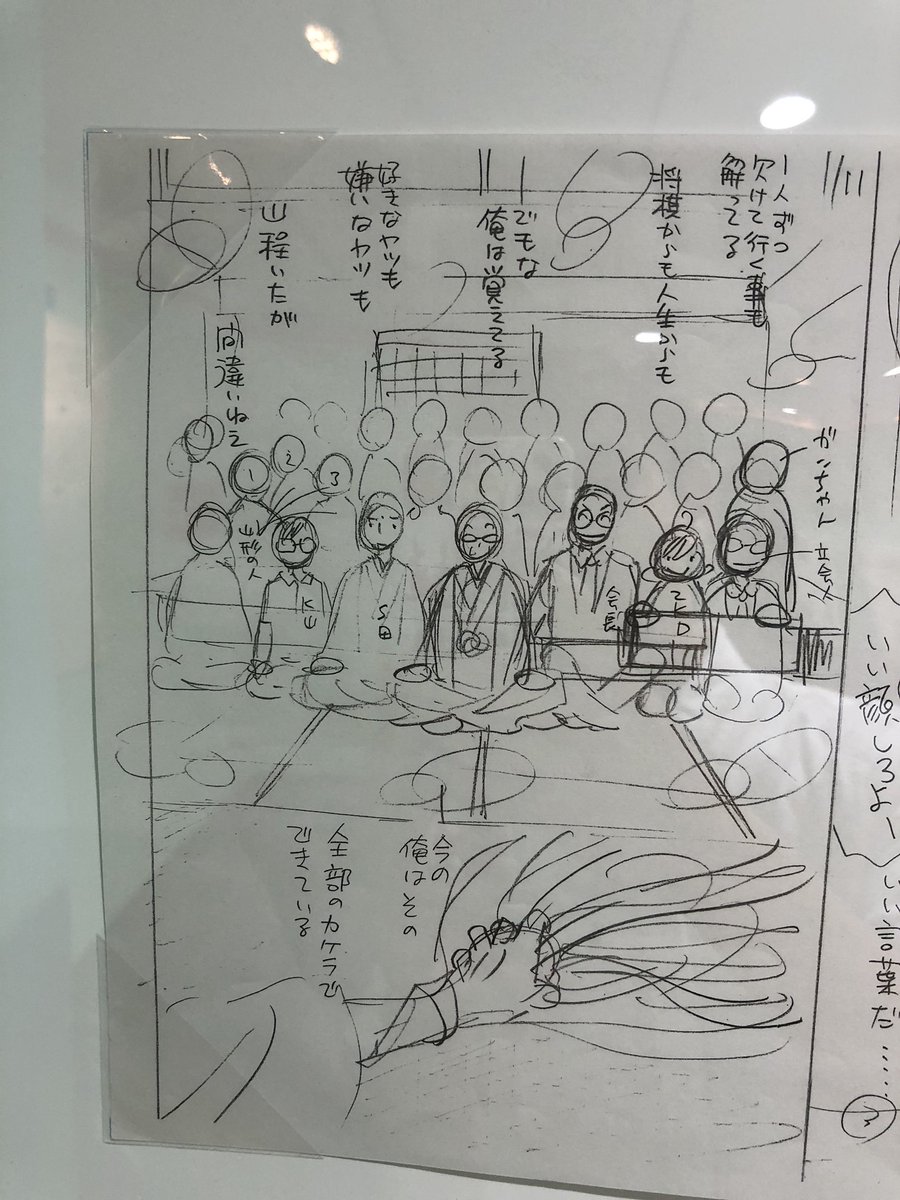 1人ずつ
欠けて行く事も
解ってる
将棋からも人生からも
でもな
俺は覚えてる
好きなヤツも
嫌いなヤツも
山程いたが
間違いねえ
ガンちゃん
立会人
1
2
3
山形の人
K山
S田
会長
今の
俺はその
全部のカケラで
できている
いい顔しろよー
いい言葉だ……
3